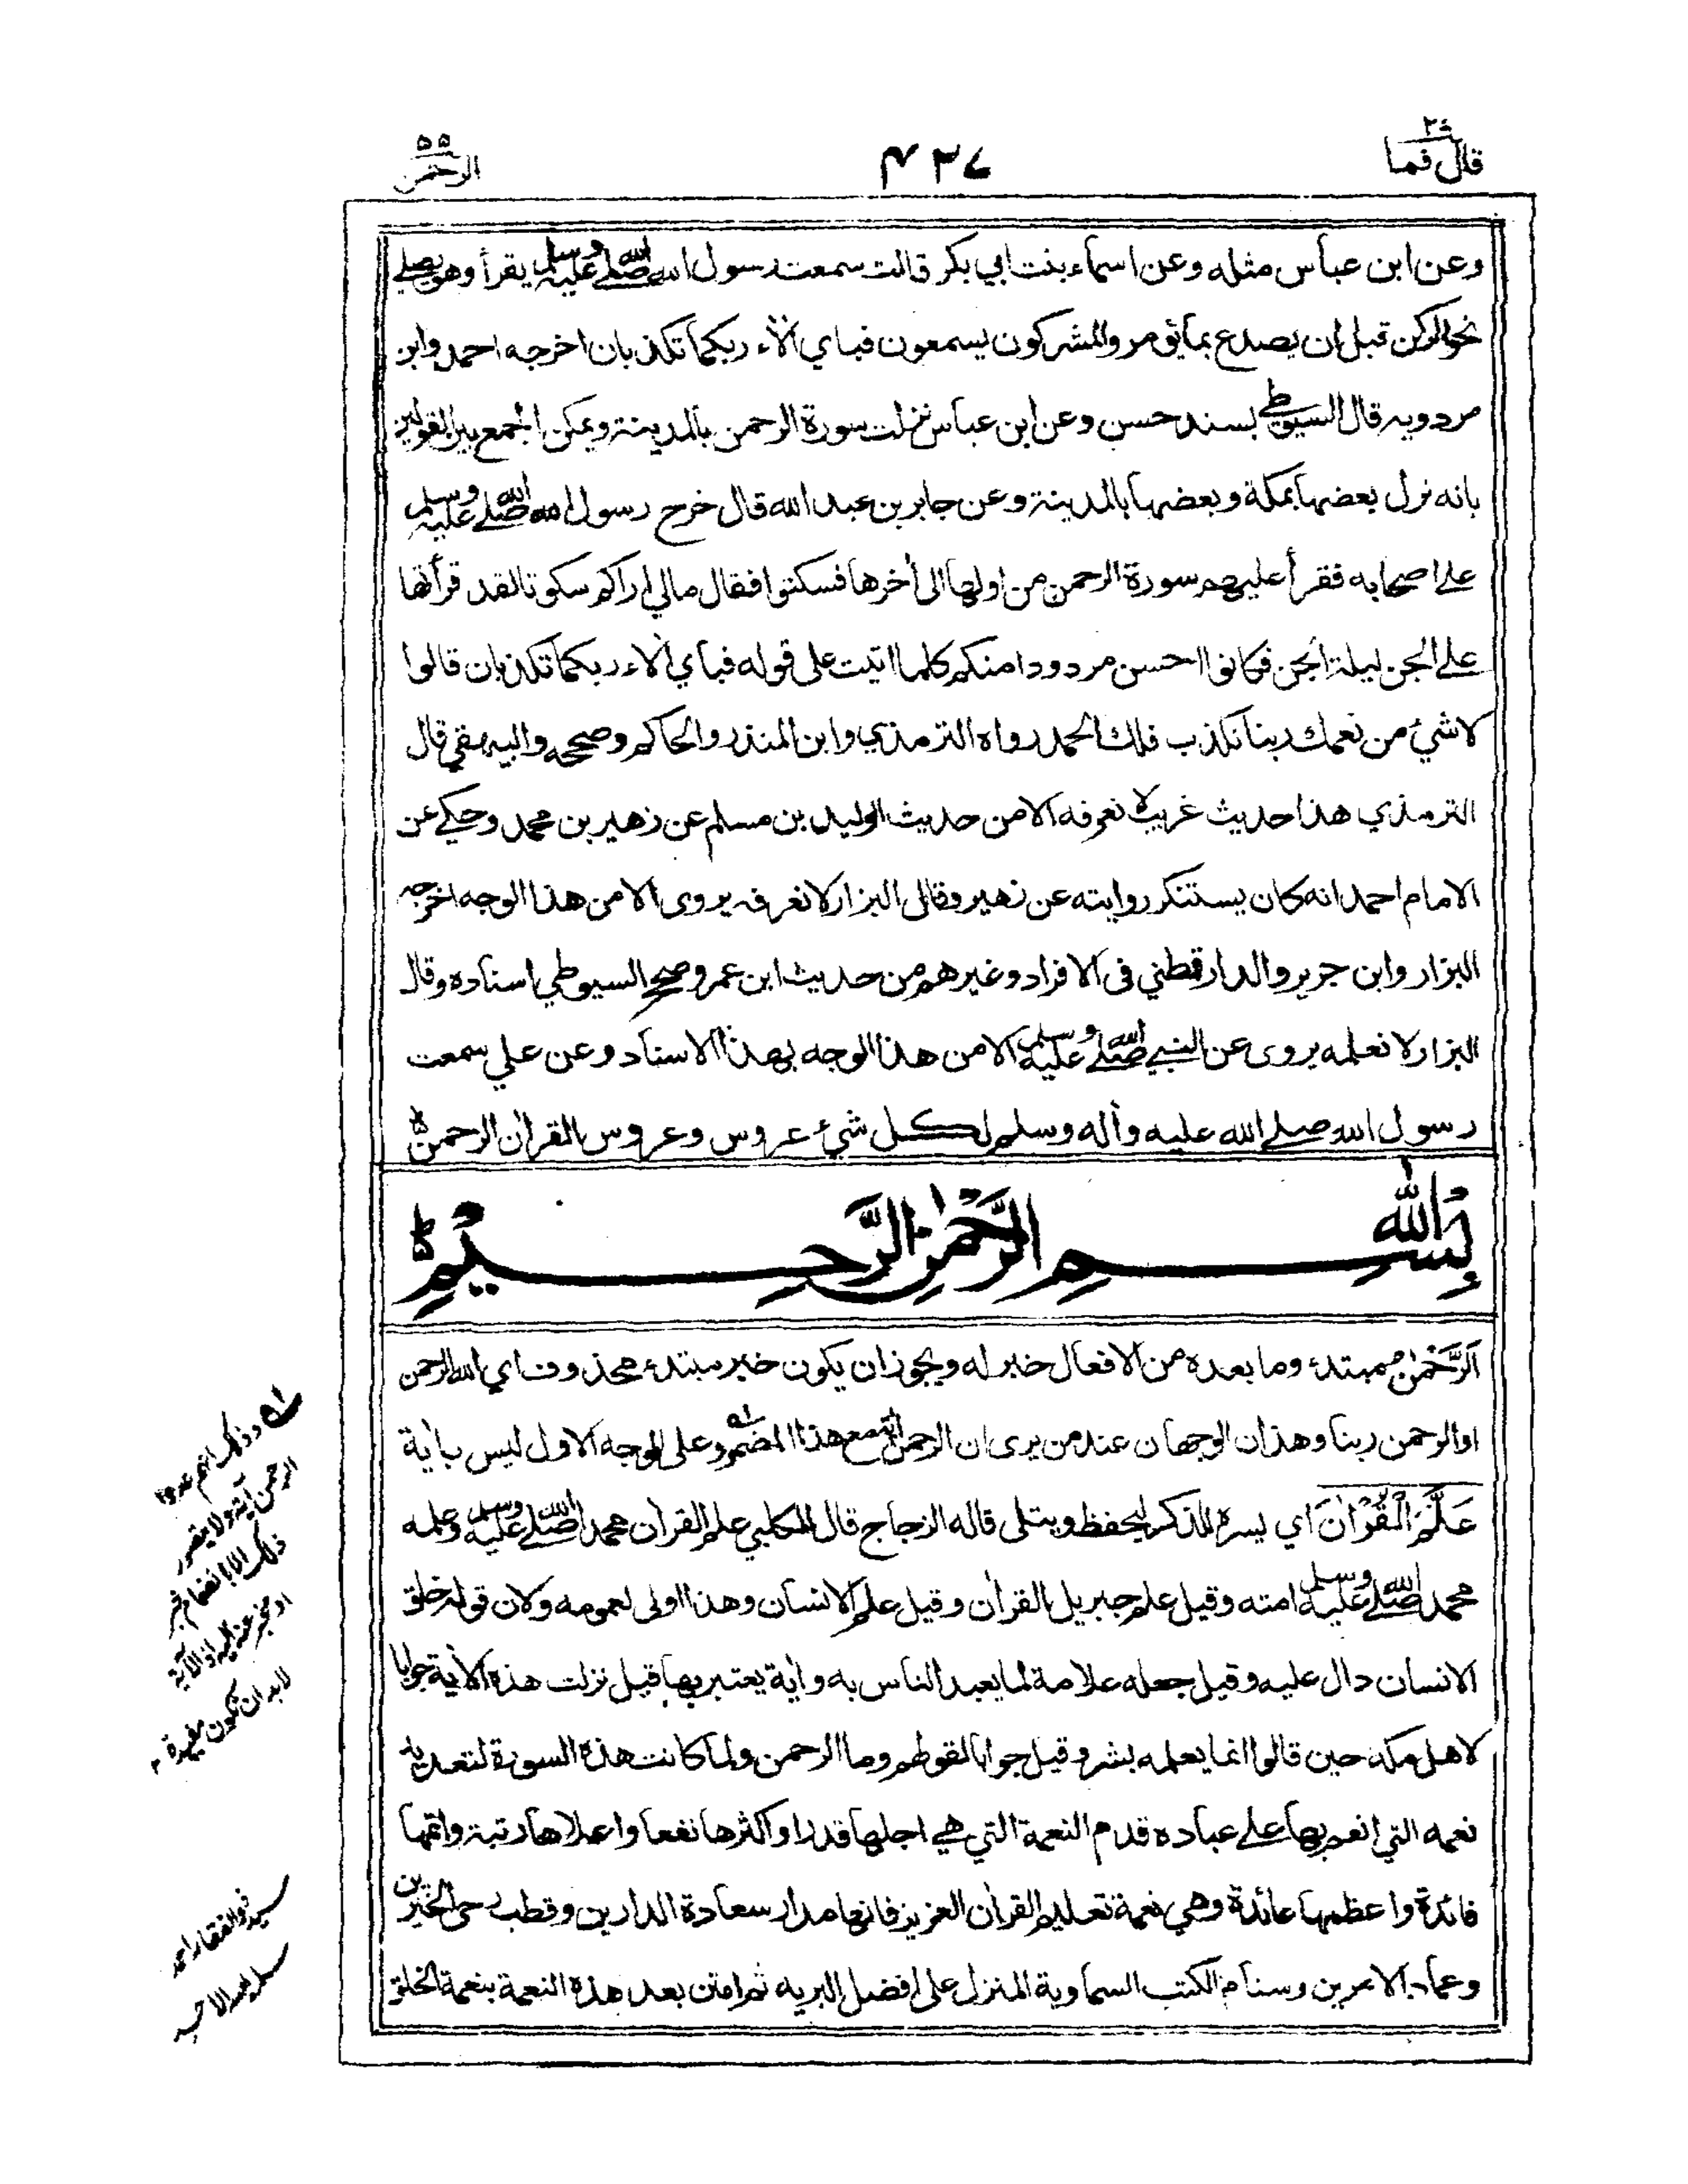 قال فما ٢٧
٤٢٧
الرحمن ٥٥
وعن ابن عباس مثله وعن اسماء بنت ابي بكر قالت سمعت رسول الله صلى الله عليه وسلم يقرأ وهو يصلي
نحو الركن قبل ان يصدع بما يؤمر والمشركون يسمعون فباي اٰلاء ربكما تكذبان اخرجه احمد وابن
مردويه قال السيوطي بسند حسن وعن ابن عباس نزلت سورة الرحمن بالمدينة ويمكن الجمع بين القولين
بانه نزل بعضها بمكة وبعضها بالمدينة وعن جابر بن عبد الله قال خرج رسول الله صلى الله عليه وسلم
على اصحابه فقرأ عليهم سورة الرحمن من اولها الى اٰخرها فسكتوا فقال مالي اراكم سكوتا لقد قرأتها
على الجن ليلة الجن فكانوا احسن مردودا منكم كلما اتيت على قوله فباي اٰلاء ربكما تكذبان قالوا
لا شئ من نعمك ربنا نكذب فلك الحمد رواه الترمذي وابن المنذر والحاكم وصححه والبيهقي قال
الترمذي هذا حديث غريب لا نعرفه الا من حديث الوليد بن مسلم عن زهير بن محمد وحكي عن
الامام احمد انه كان يستنكر روايته عن زهير وقال البزار لا نعرفه يروى الا من هذا الوجه اخرجه
البزار وابن جرير والدارقطني فى الافراد وغيرهم من حديث ابن عمر وصحح السيوطي اسناده وقال
البزار لا نعلمه يروى عن النبي صلى الله عليه وسلم الا من هذا الوجه بهذا الاسناد وعن علي سمعت
رسول الله صلى الله عليه واٰله وسلم لكل شئ عروس وعروس القراٰن الرحمن
بِسْمِ اللهِ الرَّحْمٰنِ الرَّحِيْمِ
اَلرَّحْمٰنُ مبتدء وما بعده من الافعال خبر له ويجوز ان يكون خبر مبتدء محذوف اي الله الرحمن
او الرحمن ربنا وهذان الوجهان عند من يرى ان الرحمن اٰية مع هذا المضمر وعلى الوجه الاول ليس باٰية
عَلَّمَ الْقُرْاٰنَ اي يسره للذكر ليحفظ ويتلى قاله الزجاج قال الكلبي علم القراٰن محمدا صلى الله عليه وسلم وعلمه
محمد صلى الله عليه وسلم امته وقيل علم جبريل القراٰن وقيل علم الانسان وهذا اولى لعمومه ولان قوله خلق
الانسان دال عليه وقيل جعله علامة لما يعبد الناس به واٰية يعتبر بها قيل نزلت هذه الاٰية جوابا
لاهل مكة حين قالوا انما يعلمه بشر وقيل جوابا لقولهم وما الرحمن ولما كانت هذه السورة لتعديد
نعمه التي انعم بها على عباده قدم النعمة التي هي اجلها قدرا واكثرها نفعا واعلاها رتبة واتمها
فائدة واعظمها عائدة وهي نعمة تعليم القراٰن العزيز فانها مدار سعادة الدارين وقطب رحى الخيرين
وعماد الامرين وسنام الكتب السماوية المنزل على افضل البرية ثم امتن بعد هذه النعمة بنعمة الخلق
وذلك انهم عدوا
الرحمن اٰية ولا يتصور
ذلك الا بانضمام خبر
او مخبر عنه اليه اذ الآية
لا بد ان تكون مفيدة
سيد ذوالفقار احمد
سلمه الله الاحد